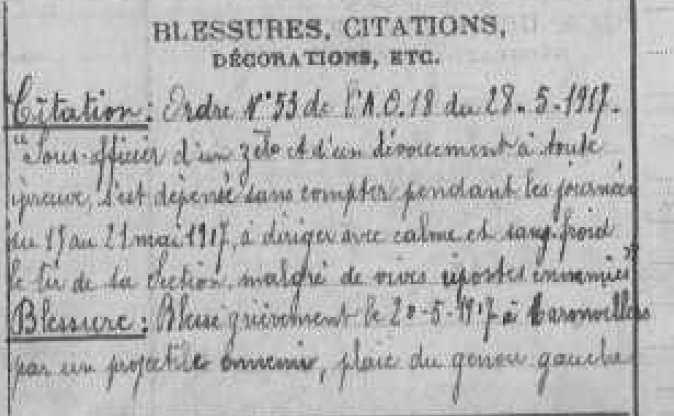 BLESSURES, CITATIONS,
DÉCORATIONS, ETC.
Citation: Ordre N°53 de l'A.D.18 du 28-5-1917.
"Sous-officier d'un zèle et d'un dévouement à toute
épreuve, s'est dépensé sans compter pendant les journées
du 17 au 21 mai 1917, à diriger avec calme et sang-froid
le tir de sa section, malgré de vives ripostes ennemies"
Blessure: Blessé grièvement le 20-5-1917 à Maronvillers
par un projectile ennemi, plaie du genou gauche